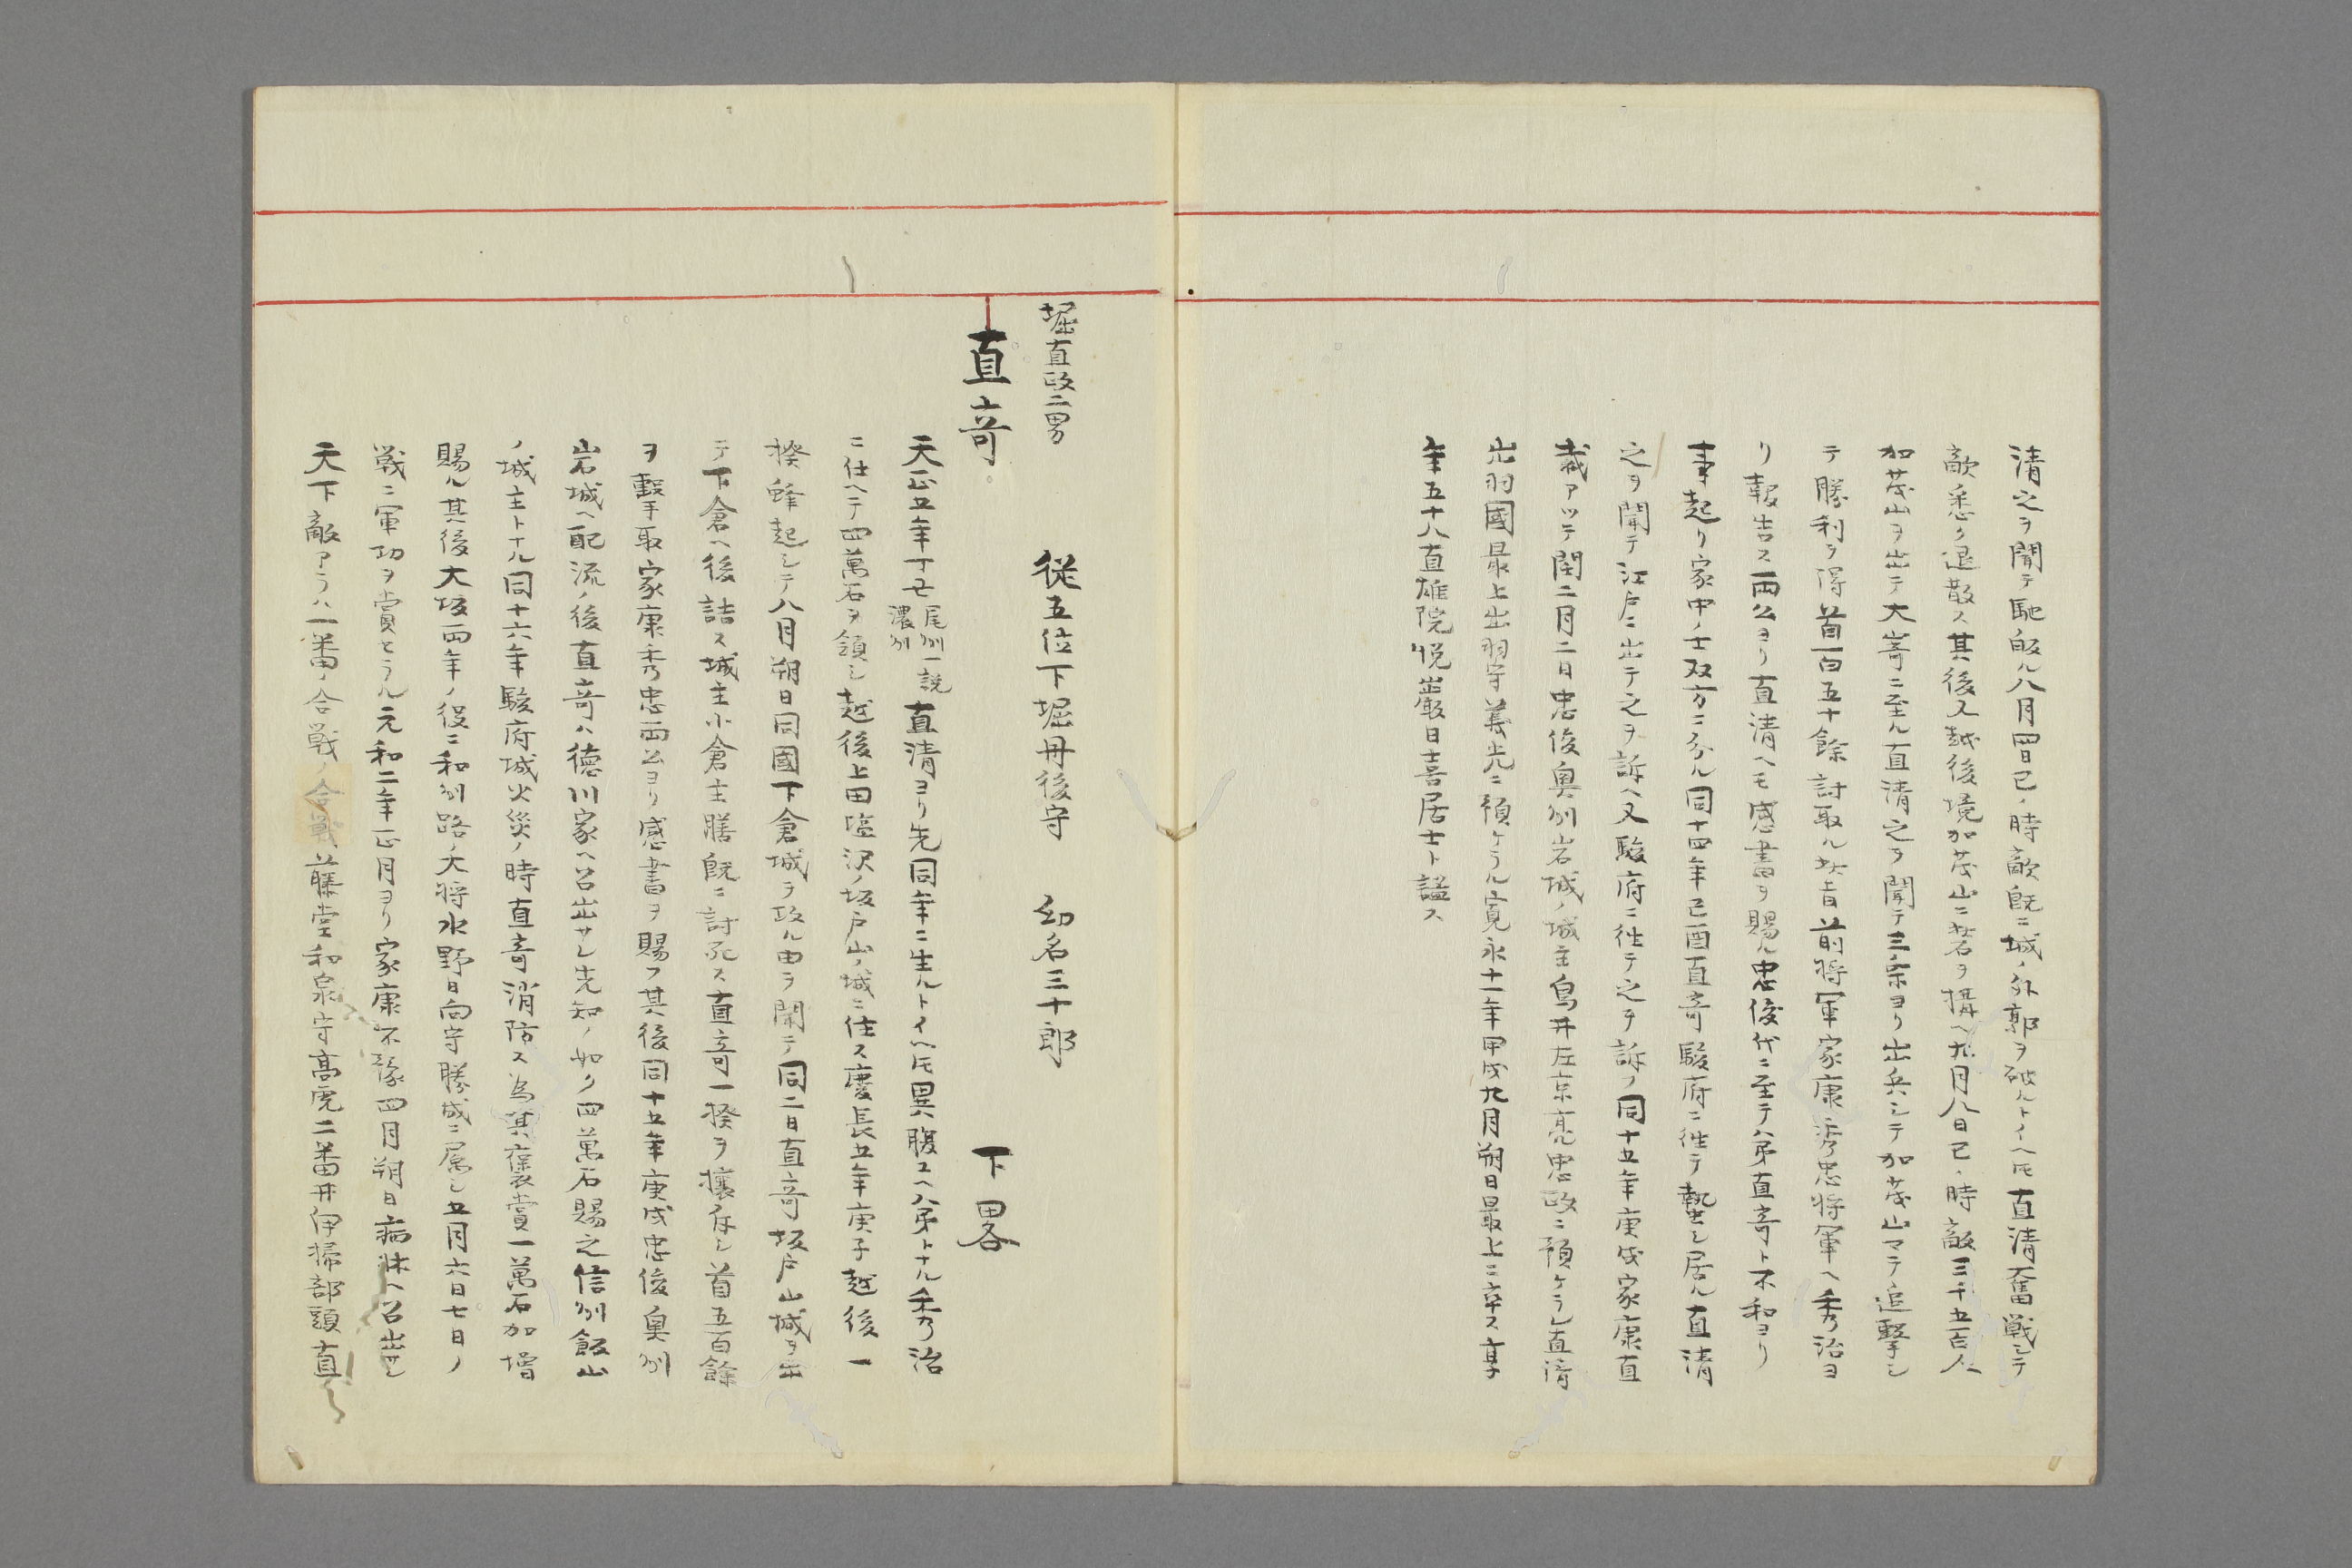 清之ヲ聞テ馳皈ル八月四日巳ノ時敵既ニ城ノ外郭ヲ破ルトイヘ𪜈直清奮戦シテ
敵悉ク退散ス其後又越後境加茂山ニ砦ヲ構ヘ九月八日巳ノ時敵三千五百人
加茂山ヲ出テ大嵜ニ至ル直清之ヲ聞テ三条ヨリ出兵シテ加茂山マテ追撃シ
テ勝利ヲ得首一百五十餘討取ル此旨前将軍家康秀忠将軍ヘ秀治ヨ
リ報告ス両公ヨリ直清ヘモ感書ヲ賜ル忠俊代ニ至テハ弟直竒ト不和ヨリ
事起リ家中ノ士双方ニ分ル同十四年己酉直竒駿府ニ往テ蟄シ居ル直清
之ヲ聞テ江戸ニ出テ之ヲ訴ヘ又駿府ニ往テ之ヲ訴フ同十五年庚戌家康直
裁アツテ閏二月二日忠俊奥州岩城ノ城主鳥井左京亮忠政ニ預ケラレ直清
出羽國最上出羽守義光ニ預ケラル寛永十一年甲戌九月朔日最上ニ卒ス享
年五十八直雄院悦巌日喜居士ト謚ス
堀直政二男
従五位下堀丹後守 幼名三十郎
直竒
下畧
天正五年丁丑尾州一説濃州直清ヨリ先同年ニ生ルトイヘ𪜈異腹ユヘ弟トナル秀治
ニ仕ヘテ四萬石ヲ領シ越後上田塩沢ノ坂戸山ノ城ニ住ス慶長五年庚子越後一
揆蜂起シテ八月朔日同國下倉城ヲ攻ル由ヲ聞テ同二日直竒坂戸山城ヲ出
テ下倉ヘ後詰ス城主小倉主膳既ニ討死ス直竒一揆ヲ攘斥シ首五百餘
ヲ撃取家康秀忠両公ヨリ感書ヲ賜フ其後同十五年庚戌忠俊奥州
岩城ヘ配流ノ後直竒ハ徳川家ヘ召出サレ先知ノ如ク四萬石賜之信州飯山
ノ城主トナル同十六年駿府城火災ノ時直竒消防ス為其褒賞一萬石加増
賜ル其後大坂両年ノ役ニ和州路ノ大将水野日向守勝成ニ属シ五月六日七日ノ
戦ニ軍功ヲ賞セラル元和二年正月ヨリ家康不豫四月朔日病牀ヘ召出サレ
天下敵アラハ一番ノ合戦ノ合戦藤堂和泉守高虎二番井伊掃部頭直